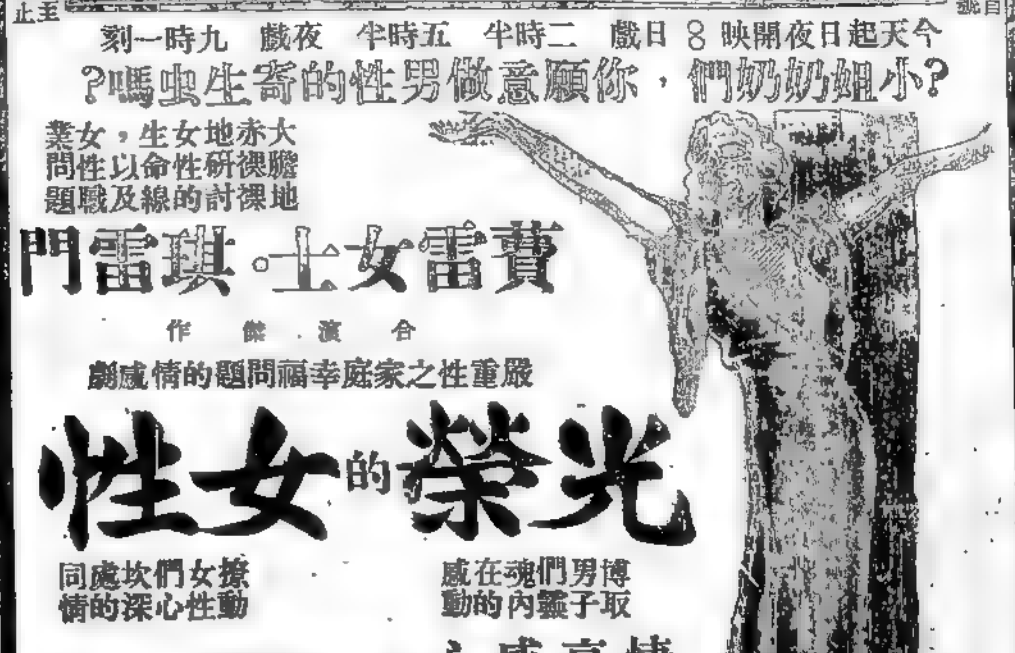 至止
今天起日夜開映 8 日戲 二時半 五時半 夜戲 九時一刻
?小姐奶奶們,你願意做男性的寄生虫嗎?
大膽地赤裸裸地研討女性的生命線,以及女性職業問題
費雷女士。琪雷門
合演傑作
嚴重性之家庭幸福問題的情感劇
光榮的女性
博取男子們靈魂內在的感動
撩動女性們心坎深處的同情